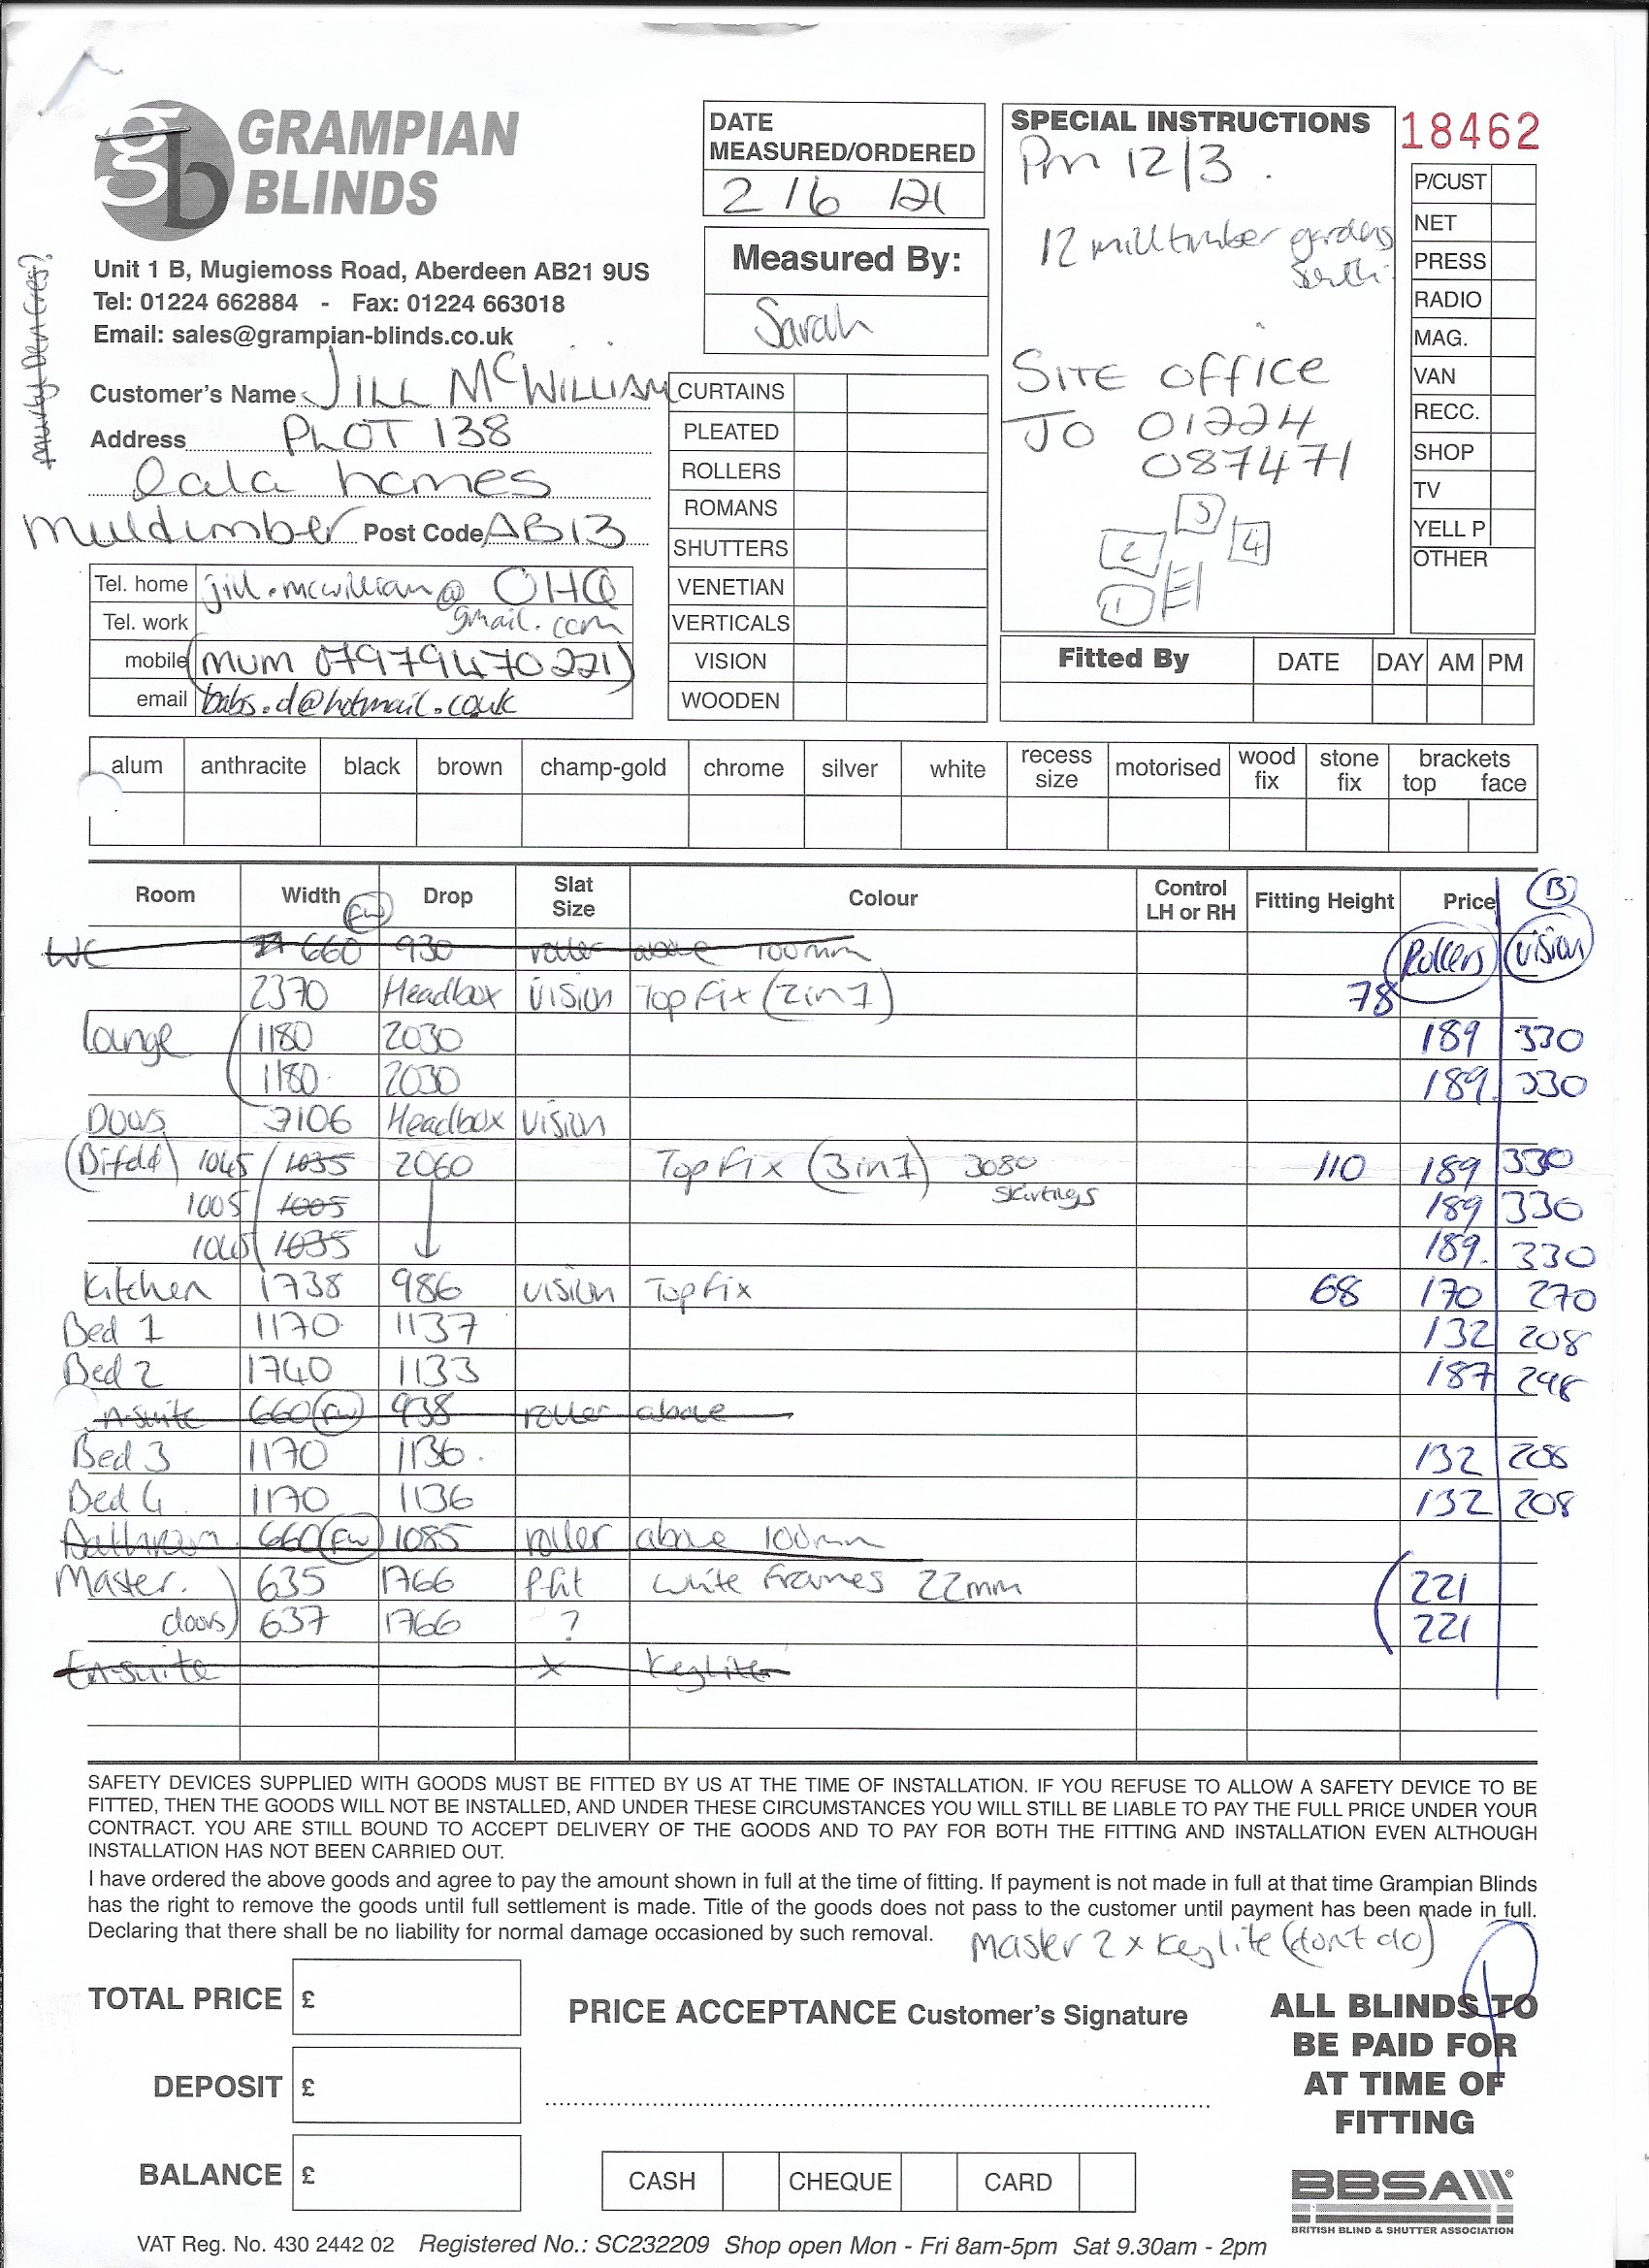 GRAMPIAN
BLINDS
Unit 1 B, Mugiemoss Road, Aberdeen AB21 9US
Tel: 01224 662884 - Fax: 01224 663018
Email: sales@grampian-blinds.co.uk
DATE
MEASURED/ORDERED
2/6/21
Measured By:
Sarah
SPECIAL INSTRUCTIONS
Pm 12/3.
12 milltimber gardens
SITE OFFICE
JO 01224
087471
3
2 4
1
18462
P/CUST
NET
PRESS
RADIO
MAG.
VAN
RECC.
SHOP
TV
YELL P
OTHER
Customer's Name JILL MCWILLIAM
Address PLOT 138
Cala homes
Post Code AB13
Tel. home jill.mcwilliam@ OHQ
Tel. work gmail.com
mobile (mum 07979470221)
email babs.d@hotmail.co.uk
CURTAINS
PLEATED
ROLLERS
ROMANS
SHUTTERS
VENETIAN
VERTICALS
VISION
WOODEN
Fitted By DATE DAY AM PM
alum anthracite black brown champ-gold chrome silver white recess size motorised wood fix stone fix brackets top face
Room Width Drop Slat Size Colour Control LH or RH Fitting Height Price B
FW
WC 660 930 roller above 100mm Rollers Vision
2370 Headbox Vision Top Fix (2 in 1) 78
Lounge 1180 2030 189 330
1180 2030 189. 330
Doors 3106 Headbox vision
(Bifold) 1045 1035 2060 Top Fix (3 in 1) 3080 110 189 330
1005 1005 skirtings 189 330
1045 1035 189. 330
Kitchen 1738 986 vision Top Fix 68 170 270
Bed 1 1170 1137 132 208
Bed 2 1740 1133 187 298
n-suite 660 (FW) 938 roller above
Bed 3 1170 1136. 132 208
Bed 4 1170 1136 132 208
Bathroom 660 (FW) 1085 roller above 100mm
Master. 635 1766 pfit white Frames 22mm 221
doors 637 1766 ? 221
En-suite x Keylite
SAFETY DEVICES SUPPLIED WITH GOODS MUST BE FITTED BY US AT THE TIME OF INSTALLATION. IF YOU REFUSE TO ALLOW A SAFETY DEVICE TO BE
FITTED, THEN THE GOODS WILL NOT BE INSTALLED, AND UNDER THESE CIRCUMSTANCES YOU WILL STILL BE LIABLE TO PAY THE FULL PRICE UNDER YOUR
CONTRACT. YOU ARE STILL BOUND TO ACCEPT DELIVERY OF THE GOODS AND TO PAY FOR BOTH THE FITTING AND INSTALLATION EVEN ALTHOUGH
INSTALLATION HAS NOT BEEN CARRIED OUT.
I have ordered the above goods and agree to pay the amount shown in full at the time of fitting. If payment is not made in full at that time Grampian Blinds
has the right to remove the goods until full settlement is made. Title of the goods does not pass to the customer until payment has been made in full.
Declaring that there shall be no liability for normal damage occasioned by such removal.
Master 2 x Keylite (dont do)
TOTAL PRICE £
DEPOSIT £
BALANCE £
PRICE ACCEPTANCE Customer's Signature
CASH CHEQUE CARD
ALL BLINDS TO
BE PAID FOR
AT TIME OF
FITTING
BBSA
BRITISH BLIND & SHUTTER ASSOCIATION
VAT Reg. No. 430 2442 02 Registered No.: SC232209 Shop open Mon - Fri 8am-5pm Sat 9.30am - 2pm